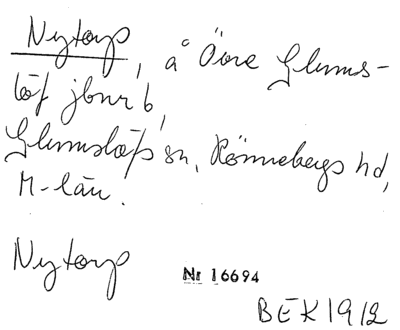 Nytorp, å Övre Glums-
löf jbnr 6,
Glumslöfs sn, Rönnebergs hd,
M-län.
Nytorp
Nr 16694
BEK 1912